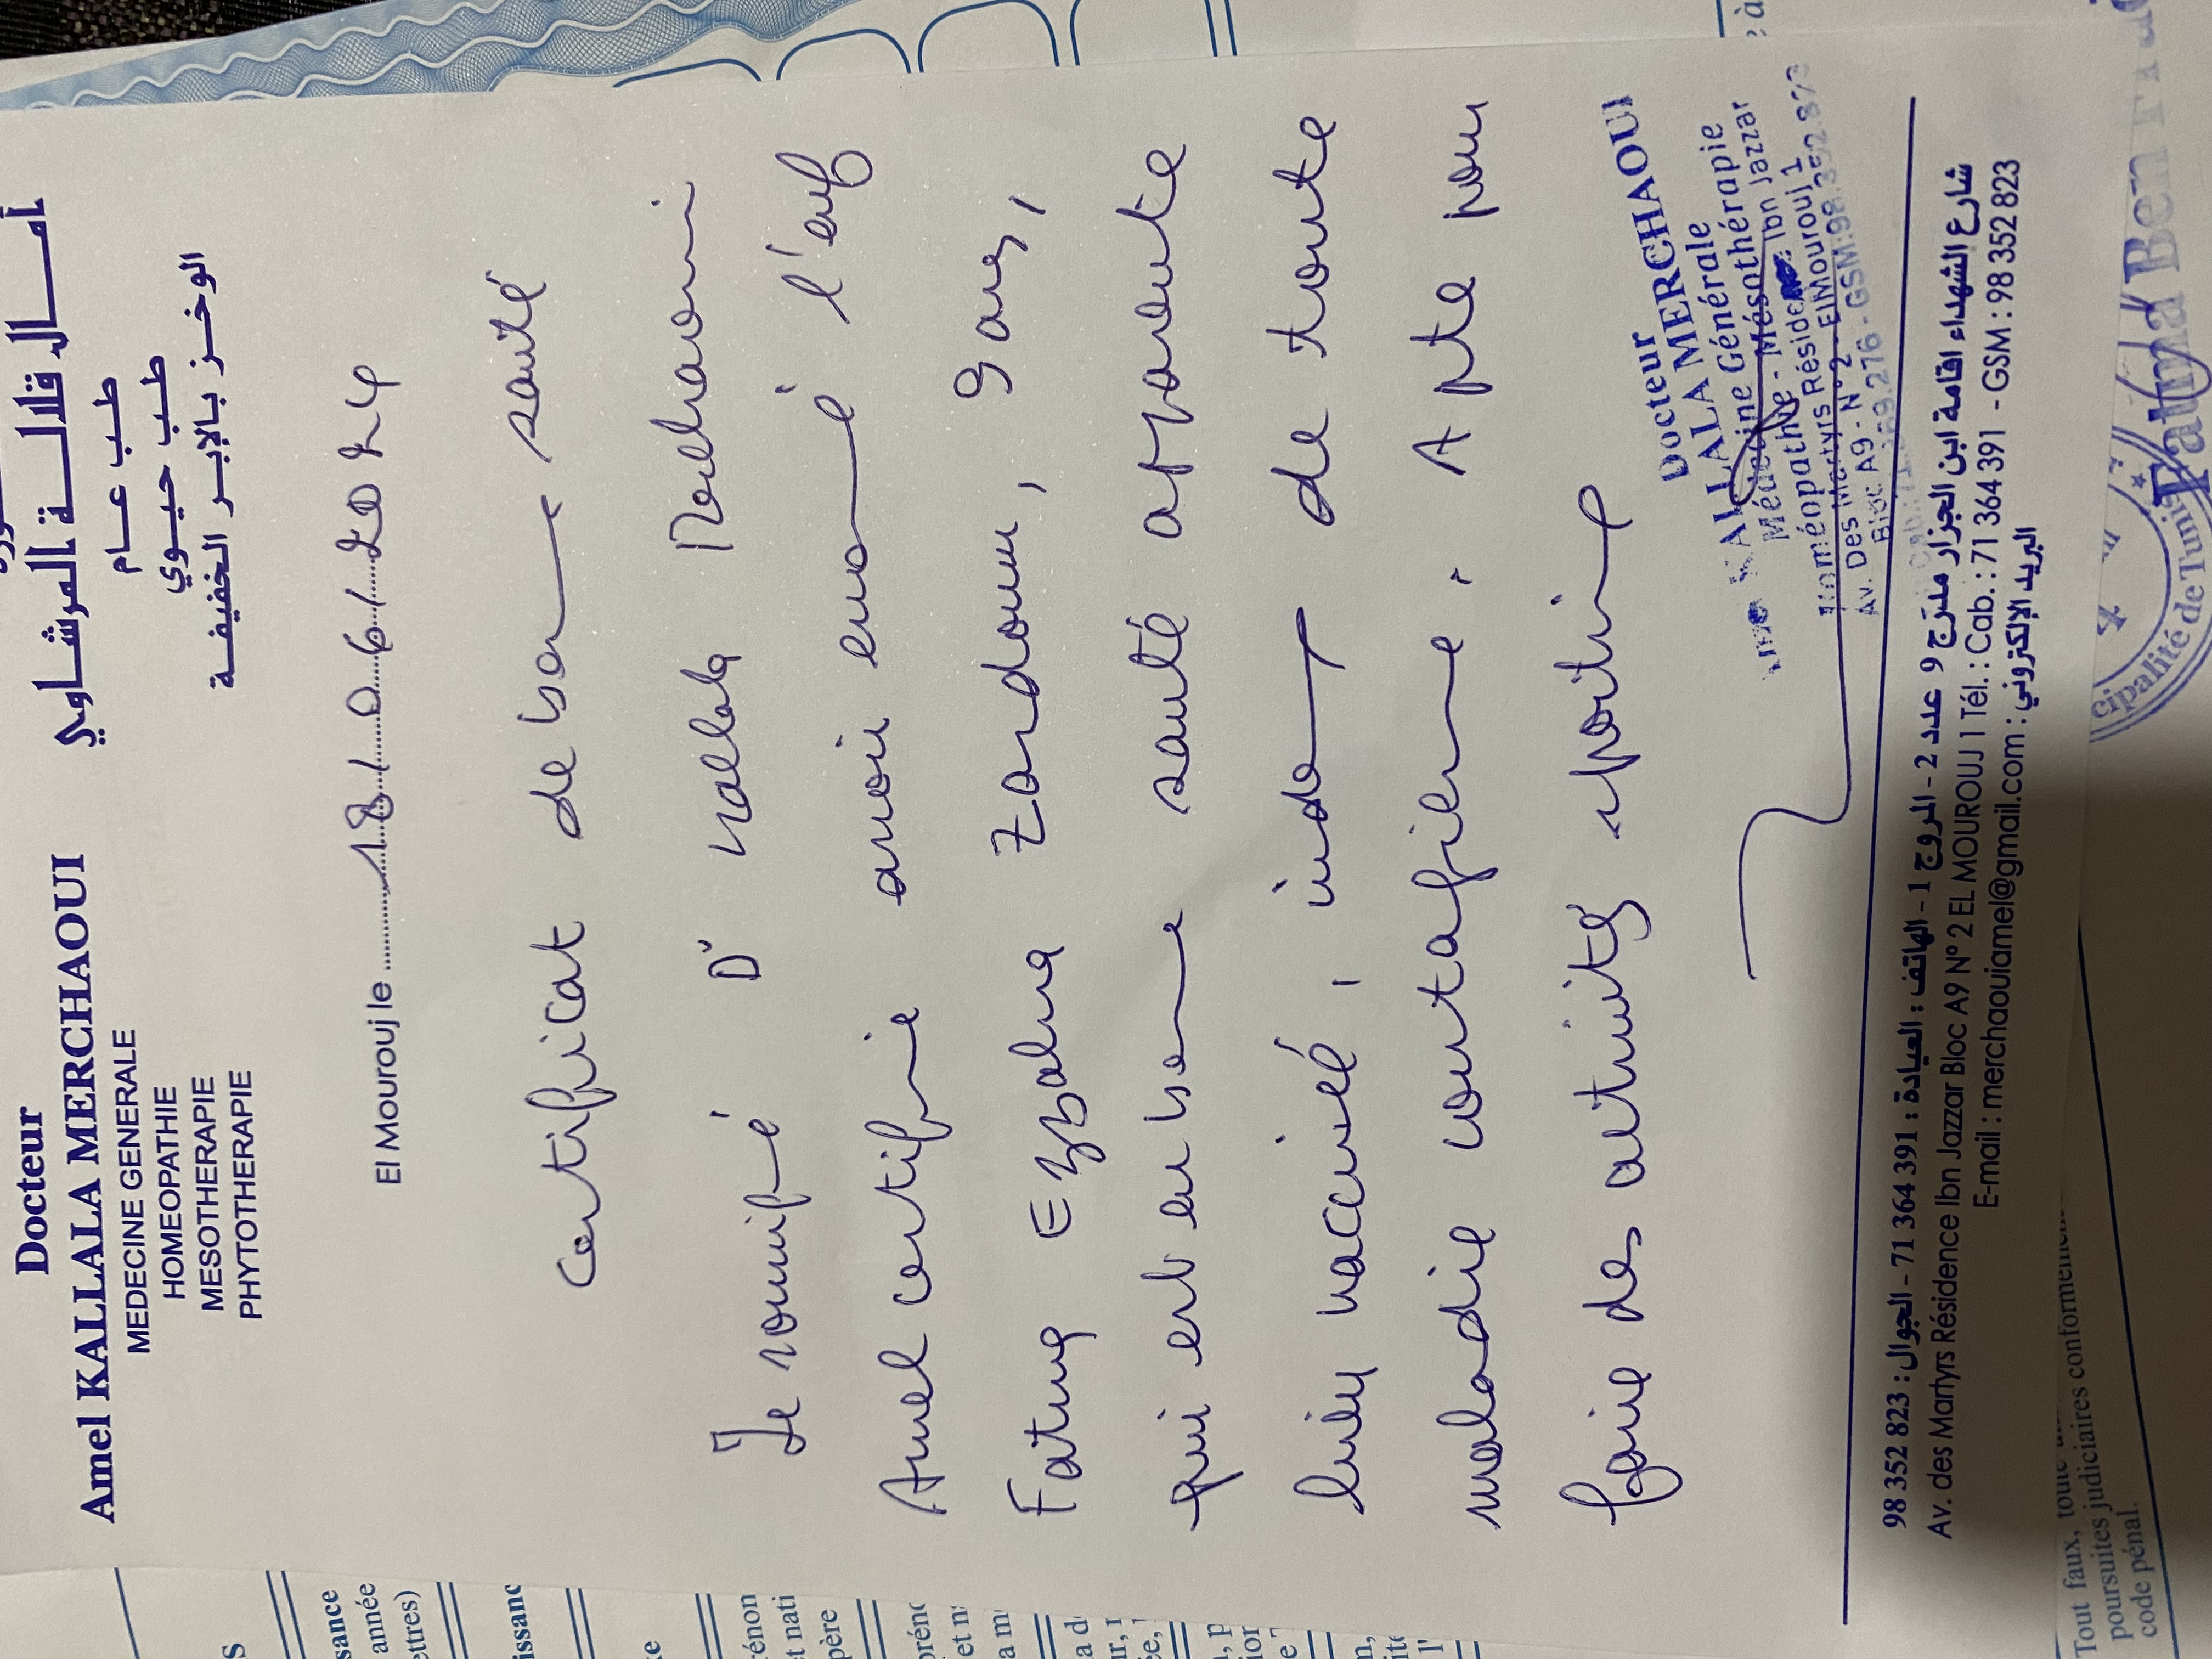 Docteur
Amel KALLALA MERCHAOUI
MEDECINE GENERALE
HOMEOPATHIE
MESOTHERAPIE
PHYTOTHERAPIE
أمــال قلالــة المرشــاوي
طــب عــام
طــب حيــوي
الوخــز بـالابــر الخفيفــة
El Mourouj le 18/06/2024
Certificat de bonne santé
Je soussigné Dr Kallala Merchaoui
Amel certifie avoir examiné l'enf
Fatma Ezzahra Zardoum, 9 ans,
qui est en bonne santé apparente
bien vaccinée, indemne de toute
maladie contagieuse. Apte pour
faire des activités sportive
Docteur
KALLALA MERCHAOUI
Médecine Générale
Homéopathie - Mésothérapie
Des Martyrs Résidence Ibn Jazzar
Av. Bloc A9 - N° 2 - El Mourouj 1
GSM: 98.352 823
شارع الشهداء اقامة ابن الجزار مدرج 9 عدد 2 - المروج 1 - الهاتف : العيادة : 391 364 71 - الجوال : 823 352 98
Av. des Martyrs Résidence Ibn Jazzar Bloc A9 N° 2 EL MOUROUJ 1 Tél. : Cab. : 71 364 391 - GSM : 98 352 823
E-mail : merchaouiamel@gmail.com : البريد الإلكتروني
cipalité de Tunis
Fatma Ben
Tout faux, toute
poursuites judiciaires conformément
code pénal.